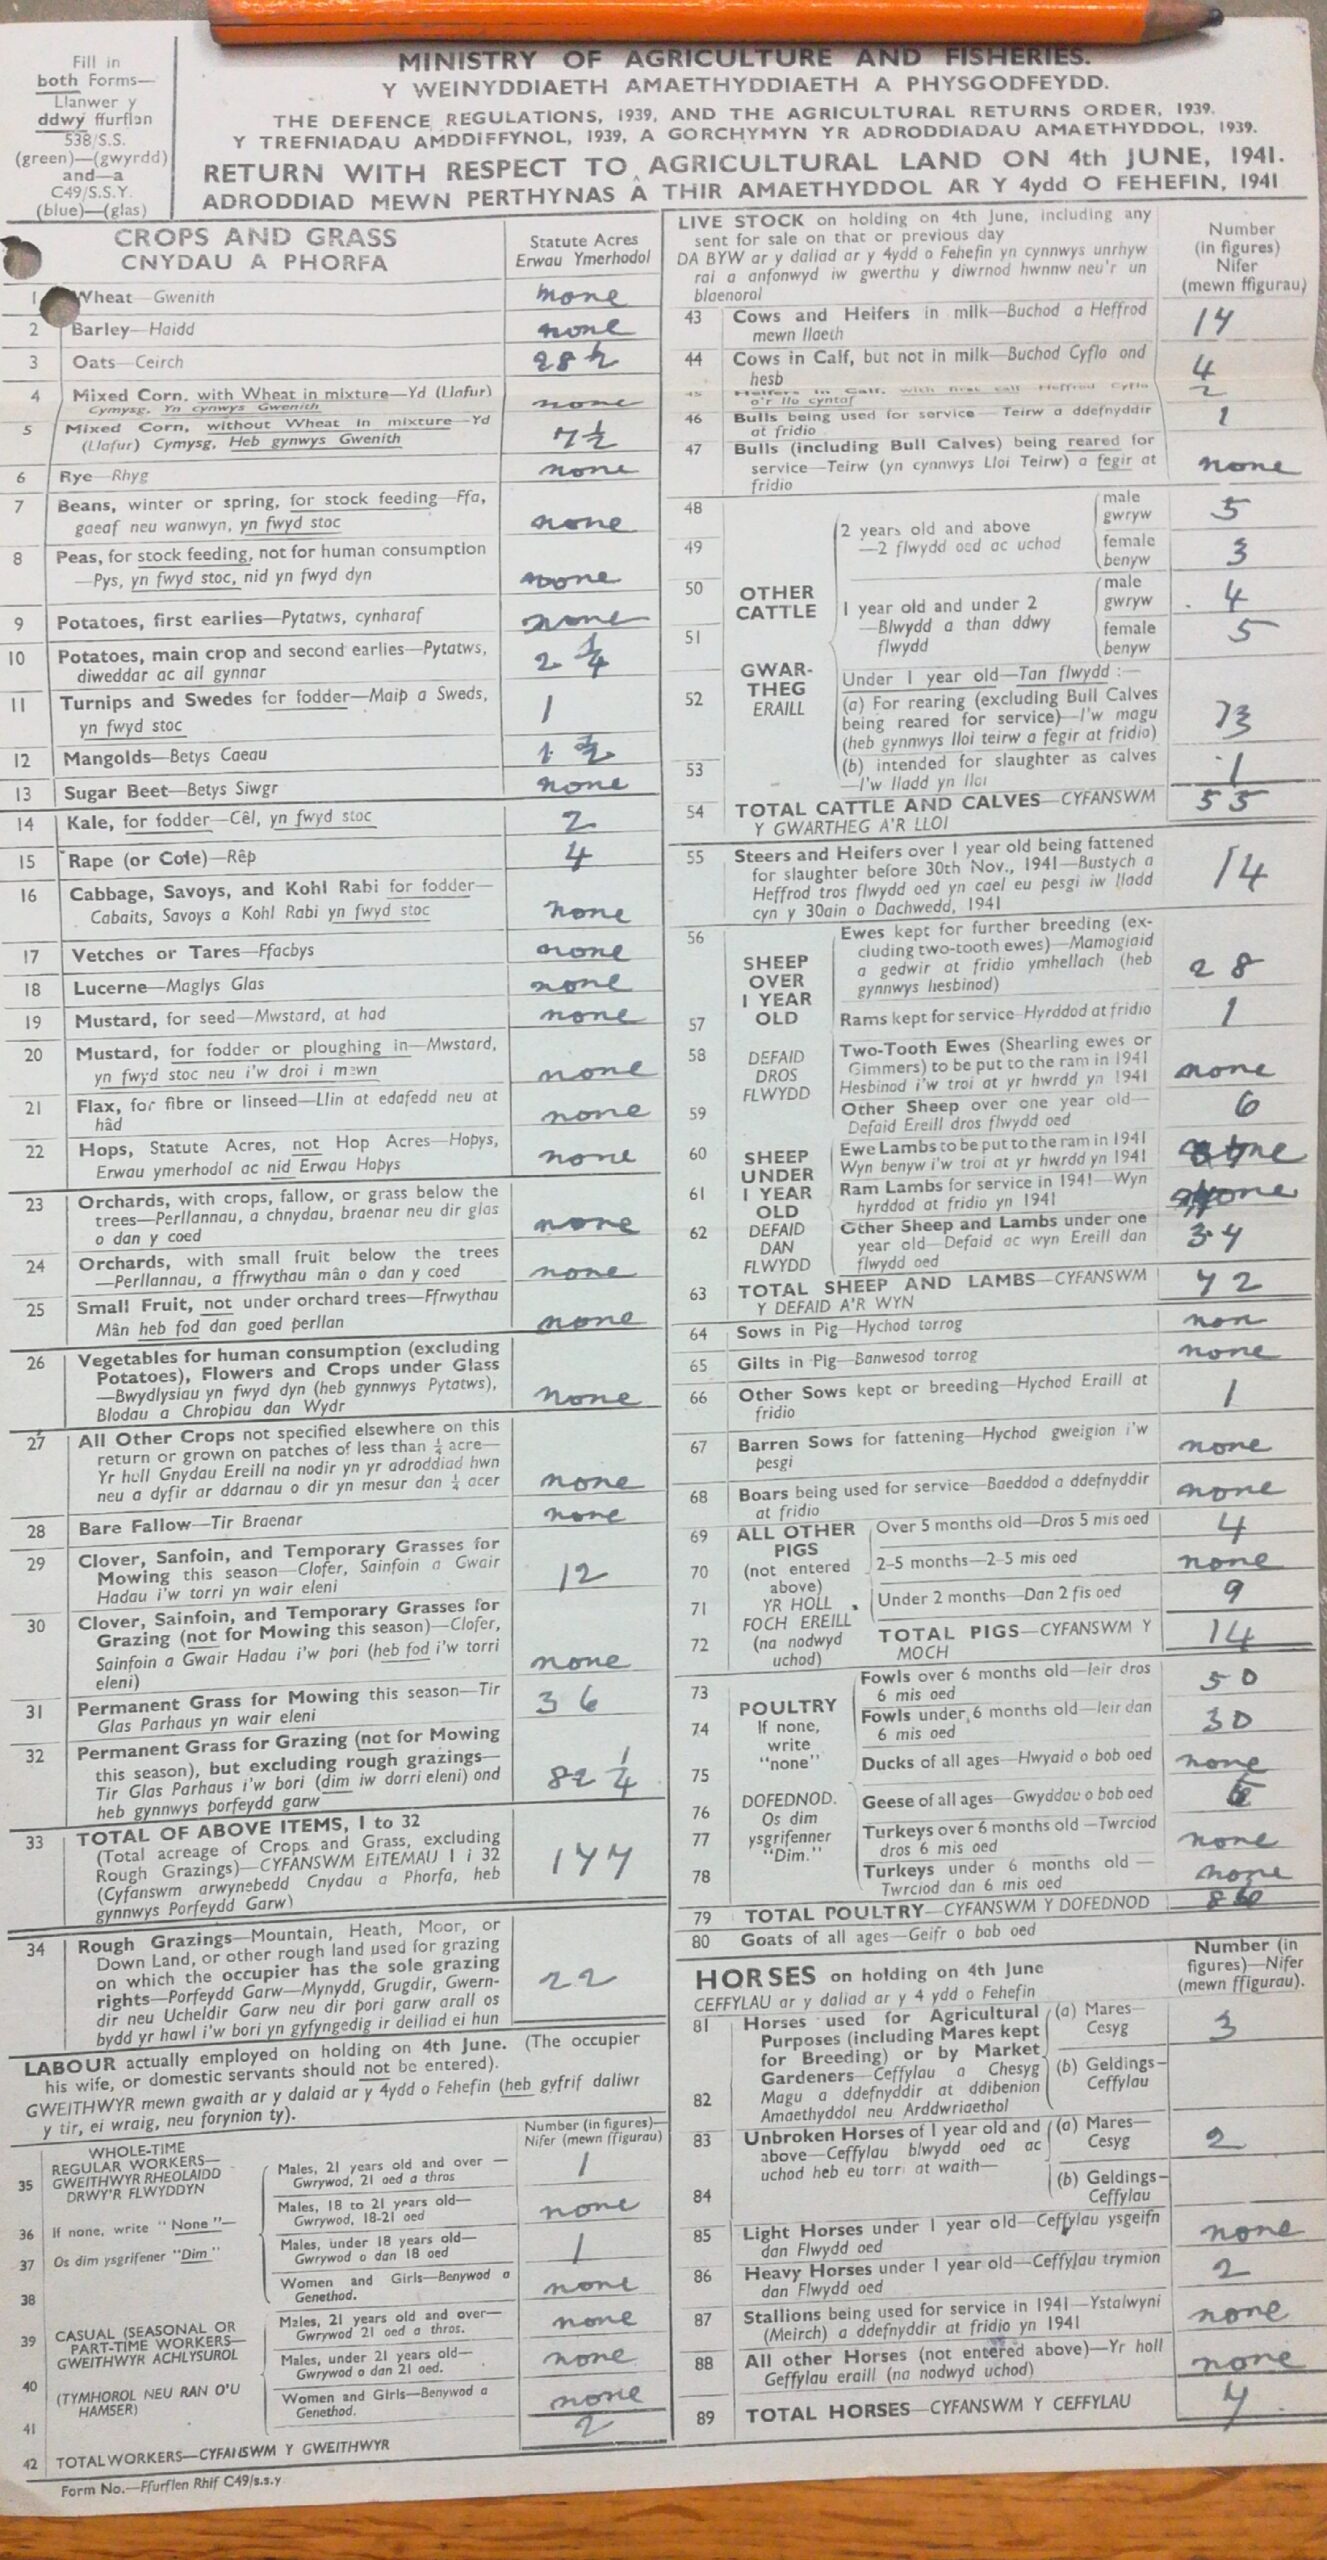 Fill in
both Forms—
Llanwer y
ddwy ffurflen
538/S.S.
(green)—(gwyrdd)
and—a
C49/S.S.Y.
(blue)—(glas)
MINISTRY OF AGRICULTURE AND FISHERIES.
Y WEINYDDIAETH AMAETHYDDIAETH A PHYSGODFEYDD.
THE DEFENCE REGULATIONS, 1939, AND THE AGRICULTURAL RETURNS ORDER, 1939.
Y TREFNIADAU AMDDIFFYNOL, 1939, A GORCHYMYN YR ADRODDIADAU AMAETHYDDOL, 1939.
RETURN WITH RESPECT TO AGRICULTURAL LAND ON 4th JUNE, 1941.
ADRODDIAD MEWN PERTHYNAS A THIR AMAETHYDDOL AR Y 4ydd O FEHEFIN, 1941
CROPS AND GRASS
CNYDAU A PHORFA
Statute Acres
Erwau Ymerhodol
1 Wheat—Gwenith none
2 Barley—Haidd none
3 Oats—Ceirch 28 ½
4 Mixed Corn, with Wheat in mixture—Yd (Llafur)
Cymysg, Yn cynwys Gwenith none
5 Mixed Corn, without Wheat in mixture—Yd
(Llafur) Cymysg, Heb gynwys Gwenith 7 ½
6 Rye—Rhyg none
7 Beans, winter or spring, for stock feeding—Ffa,
gaeaf neu wanwyn, yn fwyd stoc none
8 Peas, for stock feeding, not for human consumption
—Pys, yn fwyd stoc, nid yn fwyd dyn none
9 Potatoes, first earlies—Pytatws, cynharaf none
10 Potatoes, main crop and second earlies—Pytatws,
diweddar ac ail gynnar 2 ¼
11 Turnips and Swedes for fodder—Maip a Sweds,
yn fwyd stoc 1
12 Mangolds—Betys Caeau 1
13 Sugar Beet—Betys Siwgr none
14 Kale, for fodder—Cêl, yn fwyd stoc 2
15 Rape (or Cole)—Rêp 4
16 Cabbage, Savoys, and Kohl Rabi for fodder—
Cabaits, Savoys a Kohl Rabi yn fwyd stoc none
17 Vetches or Tares—Ffacbys none
18 Lucerne—Maglys Glas none
19 Mustard, for seed—Mwstard, at had none
20 Mustard, for fodder or ploughing in—Mwstard,
yn fwyd stoc neu i'w droi i mewn none
21 Flax, for fibre or linseed—Llin at edafedd neu at
hâd none
22 Hops, Statute Acres, not Hop Acres—Hopys,
Erwau ymerhodol ac nid Erwau Hopys none
23 Orchards, with crops, fallow, or grass below the
trees—Perllannau, a chnydau, braenar neu dir glas
o dan y coed none
24 Orchards, with small fruit below the trees
—Perllannau, a ffrwythau mân o dan y coed none
25 Small Fruit, not under orchard trees—Ffrwythau
Mân heb fod dan goed perllan none
26 Vegetables for human consumption (excluding
Potatoes), Flowers and Crops under Glass
—Bwydlysiau yn fwyd dyn (heb gynnwys Pytatws),
Blodau a Chropiau dan Wydr none
27 All Other Crops not specified elsewhere on this
return or grown on patches of less than ¼ acre—
Yr holl Gnydau Ereill na nodir yn yr adroddiad hwn
neu a dyfir ar ddarnau o dir yn mesur dan ¼ acer none
28 Bare Fallow—Tir Braenar none
29 Clover, Sanfoin, and Temporary Grasses for
Mowing this season—Clofer, Sainfoin a Gwair
Hadau i'w torri yn wair eleni 12
30 Clover, Sainfoin, and Temporary Grasses for
Grazing (not for Mowing this season)—Clofer,
Sainfoin a Gwair Hadau i'w pori (heb fod i'w torri
eleni) none
31 Permanent Grass for Mowing this season—Tir
Glas Parhaus yn wair eleni 36
32 Permanent Grass for Grazing (not for Mowing
this season), but excluding rough grazings—
Tir Glas Parhaus i'w bori (dim iw dorri eleni) ond
heb gynnwys porfeydd garw 82 ¼
33 TOTAL OF ABOVE ITEMS, 1 to 32
(Total acreage of Crops and Grass, excluding
Rough Grazings)—CYFANSWM EITEMAU 1 i 32
(Cyfanswm arwynebedd Cnydau a Phorfa, heb
gynnwys Porfeydd Garw) 177
34 Rough Grazings—Mountain, Heath, Moor, or
Down Land, or other rough land used for grazing
on which the occupier has the sole grazing
rights—Porfeydd Garw—Mynydd, Grugdir, Gwern-
dir neu Ucheldir Garw neu dir pori garw arall os
bydd yr hawl i'w bori yn gyfyngedig ir deiliad ei hun 22
LABOUR actually employed on holding on 4th June. (The occupier
his wife, or domestic servants should not be entered).
GWEITHWYR mewn gwaith ar y dalaid ar y 4ydd o Fehefin (heb gyfrif daliwr
y tir, ei wraig, neu forynion ty).
Number (in figures)—
Nifer (mewn ffigurau)
WHOLE-TIME
REGULAR WORKERS—
GWEITHWYR RHEOLAIDD
DRWY'R FLWYDDYN
If none, write "None"—
Os dim ysgrifener "Dim"
35 Males, 21 years old and over —
Gwrywod, 21 oed a thros 1
36 Males, 18 to 21 years old—
Gwrywod, 18-21 oed none
37 Males, under 18 years old—
Gwrywod o dan 18 oed 1
38 Women and Girls—Benywod a
Genethod. none
CASUAL (SEASONAL OR
PART-TIME WORKERS—
GWEITHWYR ACHLYSUROL
(TYMHOROL NEU RAN O'U
HAMSER)
39 Males, 21 years old and over—
Gwrywod 21 oed a thros. none
40 Males, under 21 years old—
Gwrywod o dan 21 oed. none
41 Women and Girls—Benywod a
Genethod. none
42 TOTAL WORKERS—CYFANSWM Y GWEITHWYR 2
Form No.—Ffurflen Rhif C49/s.s.y
LIVE STOCK on holding on 4th June, including any
sent for sale on that or previous day
DA BYW ar y daliad ar y 4ydd o Fehefin yn cynnwys unrhyw
rai a anfonwyd iw gwerthu y diwrnod hwnnw neu'r un
blaenorol
Number
(in figures)
Nifer
(mewn ffigurau)
43 Cows and Heifers in milk—Buchod a Heffrod
mewn llaeth 17
44 Cows in Calf, but not in milk—Buchod Cyflo ond
hesb 4
45 Heifers in Calf, with first calf Heffrod Cyflo
o'r llo cyntaf 2
46 Bulls being used for service— Teirw a ddefnyddir
at fridio 1
47 Bulls (including Bull Calves) being reared for
service—Teirw (yn cynnwys Lloi Teirw) a fegir at
fridio none
OTHER
CATTLE
GWAR-
THEG
ERAILL
2 years old and above
—2 flwydd oed ac uchod
48 male
gwryw 5
49 female
benyw 3
1 year old and under 2
—Blwydd a than ddwy
flwydd
50 male
gwryw 4
51 female
benyw 5
Under 1 year old—Tan flwydd :—
52 (a) For rearing (excluding Bull Calves
being reared for service)—I'w magu
(heb gynnwys lloi teirw a fegir at fridio) 13
53 (b) intended for slaughter as calves
—I'w lladd yn lloi 1
54 TOTAL CATTLE AND CALVES—CYFANSWM
Y GWARTHEG A'R LLOI 55
55 Steers and Heifers over 1 year old being fattened
for slaughter before 30th Nov., 1941—Bustych a
Heffrod tros flwydd oed yn cael eu pesgi iw lladd
cyn y 30ain o Dachwedd, 1941 14
SHEEP
OVER
1 YEAR
OLD
DEFAID
DROS
FLWYDD
56 Ewes kept for further breeding (ex-
cluding two-tooth ewes)—Mamogiaid
a gedwir at fridio ymhellach (heb
gynnwys hesbinod) 28
57 Rams kept for service—Hyrddod at fridio 1
58 Two-Tooth Ewes (Shearling ewes or
Gimmers) to be put to the ram in 1941
Hesbinod i'w troi at yr hwrdd yn 1941 none
59 Other Sheep over one year old—
Defaid Ereill dros flwydd oed 6
SHEEP
UNDER
1 YEAR
OLD
DEFAID
DAN
FLWYDD
60 Ewe Lambs to be put to the ram in 1941
Wyn benyw i'w troi at yr hwrdd yn 1941 none
61 Ram Lambs for service in 1941—Wyn
hyrddod at fridio yn 1941 none
62 Other Sheep and Lambs under one
year old—Defaid ac wyn Ereill dan
flwydd oed 37
63 TOTAL SHEEP AND LAMBS—CYFANSWM
Y DEFAID A'R WYN 72
64 Sows in Pig—Hychod torrog non
65 Gilts in Pig—Banwesod torrog none
66 Other Sows kept or breeding—Hychod Eraill at
fridio 1
67 Barren Sows for fattening—Hychod gweigion i'w
pesgi none
68 Boars being used for service—Baeddod a ddefnyddir
at fridio none
ALL OTHER
PIGS
(not entered
above)
YR HOLL
FOCH EREILL
(na nodwyd
uchod)
69 Over 5 months old—Dros 5 mis oed 4
70 2-5 months—2-5 mis oed none
71 Under 2 months—Dan 2 fis oed 9
72 TOTAL PIGS—CYFANSWM Y
MOCH 14
POULTRY
If none,
write
"none"
DOFEDNOD.
Os dim
ysgrifenner
"Dim."
73 Fowls over 6 months old—Ieir dros
6 mis oed 50
74 Fowls under 6 months old—Ieir dan
6 mis oed 30
75 Ducks of all ages—Hwyaid o bob oed none
76 Geese of all ages—Gwyddau o bob oed
77 Turkeys over 6 months old—Twrciod
dros 6 mis oed none
78 Turkeys under 6 months old —
Twrciod dan 6 mis oed none
79 TOTAL POULTRY—CYFANSWM Y DOFEDNOD
80 Goats of all ages—Geifr o bob oed
HORSES on holding on 4th June
CEFFYLAU ar y daliad ar y 4 ydd o Fehefin
Number (in
figures)—Nifer
(mewn ffigurau).
Horses used for Agricultural
Purposes (including Mares kept
for Breeding) or by Market
Gardeners—Ceffylau a Chesyg
Magu a ddefnyddir at ddibenion
Amaethyddol neu Arddwriaethol
81 (a) Mares—
Cesyg 3
82 (b) Geldings—
Ceffylau
Unbroken Horses of 1 year old and
above—Ceffylau blwydd oed ac
uchod heb eu torri at waith—
83 (a) Mares—
Cesyg 2
84 (b) Geldings—
Ceffylau
85 Light Horses under 1 year old—Ceffylau ysgeifn
dan Flwydd oed none
86 Heavy Horses under 1 year old—Ceffylau trymion
dan Flwydd oed 2
87 Stallions being used for service in 1941—Ystalwyni
(Meirch) a ddefnyddir at fridio yn 1941 none
88 All other Horses (not entered above)—Yr holl
Geffylau eraill (na nodwyd uchod) none
89 TOTAL HORSES—CYFANSWM Y CEFFYLAU 7